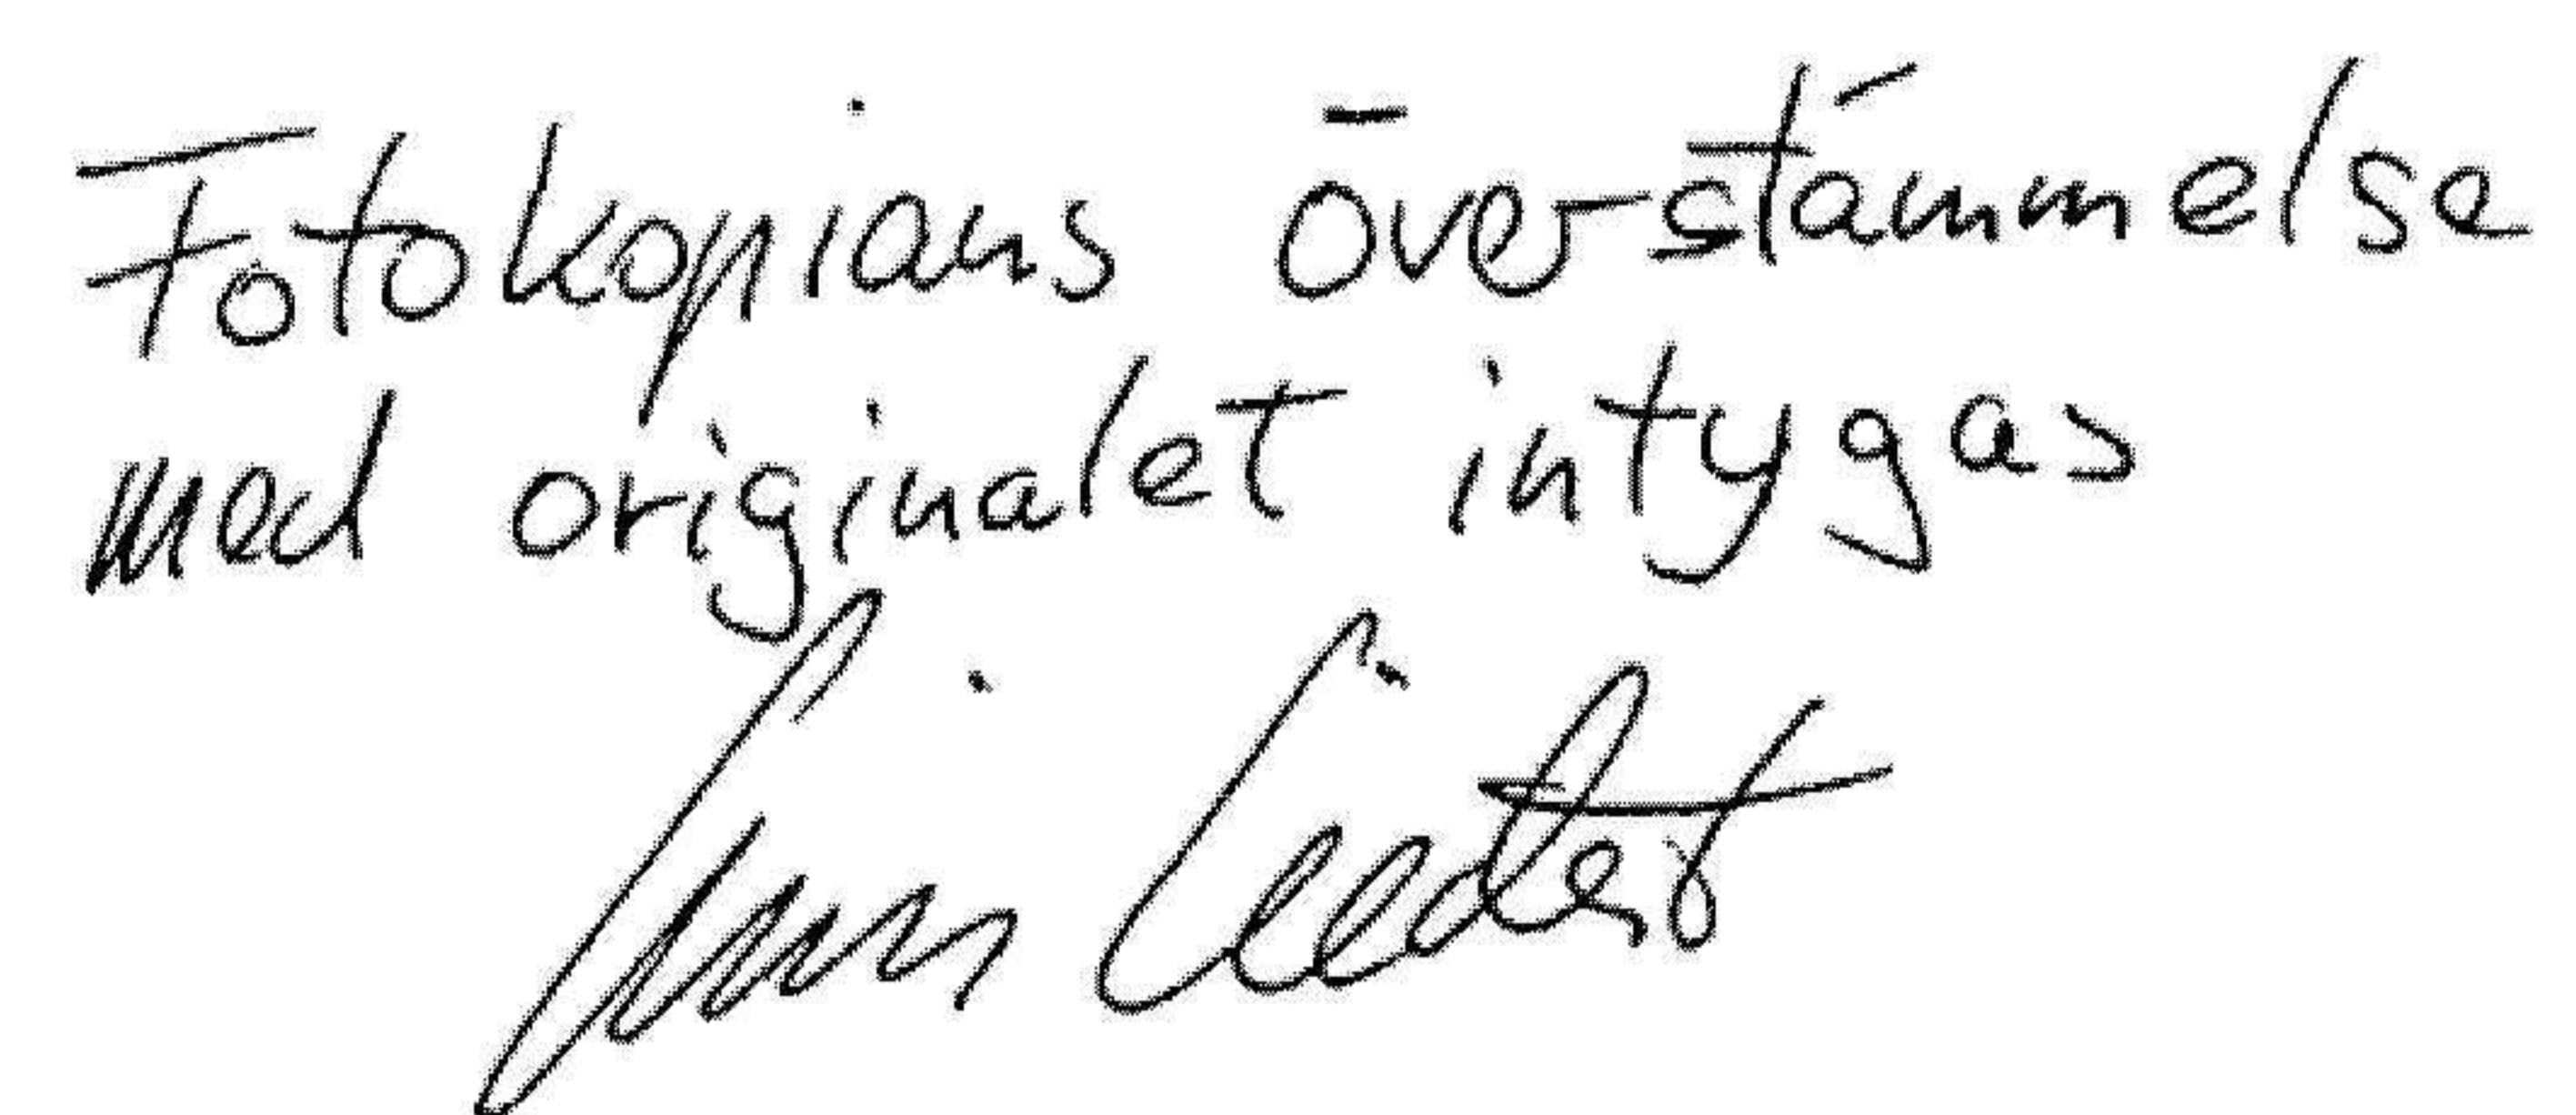 Fotokopians överstämmelse
med originalet intygas